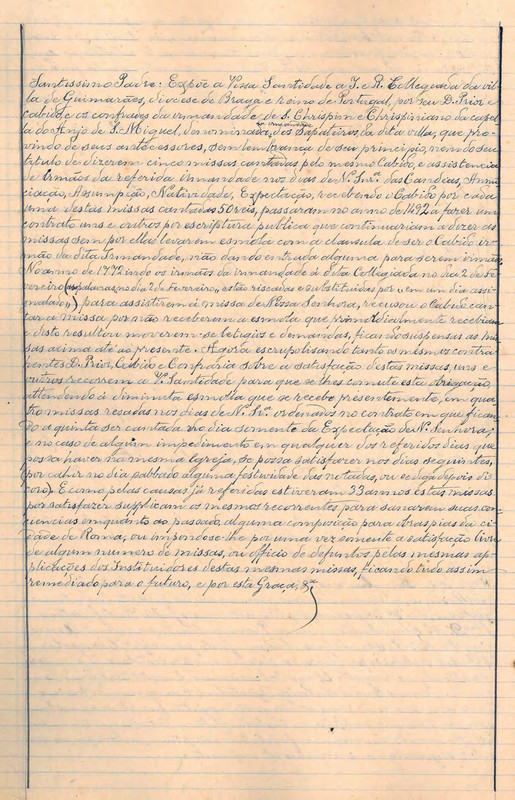 Santissimo Padre: Expõe a Vossa Santidade a I. e R. Collegiada da vil-
la de Guimarães, diocese de Braga e reino de Portugal, por seu D. Prior e
Cabido, e os confrades da irmandade de S. Chrispim e Chrispiniano da capel-
la do Anjo de S. Miguel, denominada, dos Sapateiros, da dita villa, que pro-
vindo de seus antecessores, sem lembrança de seu principio, nem do seu
titulo de dizerem cinco missas cantadas pelo mesmo Cabido, e assistencia
de irmãos da referida irmandade nos dias de Nª. Srª. das Candeias, Annun-
ciação, Assumpição, Natividade, Expectação, recebendo o Cabido por cada
uma destas missas cantadas 50 reis, passaram no anno de 1492 a fazer um
contrato uns e outros por escriptura publica que continuariam a dizer as
missas sem por ellas levarem esmola com a clausula de ser o Cabido ir-
mão da dita Irmandade, não dando entrada alguma para serem irmãos.
No anno de 1792 indo os irmãos da irmandade à dita Collegiada no dia 2 de Fe-
vereiro (as palavras, no dia 2 de Fevereiro, estão riscadas e substituidas por "em um dia assi-
malado") para assistirem à missa de Nossa Senhora, recusou o Cabido can-
tar a missa por não receberem a esmola que primordialmente recebiam
e disto resultou moverem-se letigios e demandas, ficando suspensas as mis-
sas acima até ao presente. Agora escrupolisando tanto os mesmos contra-
hentes D. Prior, Cabido e Confraria sobre a satisfação destas missas, uns e
outros recorrem a Vª. Santidade para que se lhes comute esta obrigação,
attendendo à diminuta esmola que se recebe presentemente, em qua-
tro missas resadas nos dias de Nª. Srª. ordenados no contrato em que fican-
do a quinta ser cantada no dia somente da Expectação de Nª. Senhora;
e no caso de algum impedimento em qualquer dos referidos dias que
possa haver na mesma Igreja, se possa satisfazer nos dias seguintes,
(por cahir no dia sabbado alguma festividade das notadas, ou se diga depois do
coro). E como pelas causas já referidas estiveram 33 annos estas missas
por satisfazer supplicam os mesmos recorrentes para sanarem suas con-
ciencias emquanto ao passado, alguma composição para obras pias da ci-
dade de Roma, ou impondo-se-lhe por uma vez somente a satisfação
de algum numero de missas, ou officio de defuntos pelas mesmas ap-
plicações dos Instituidores destas mesmas missas, ficando tudo assim
remediado para o futuro, e por esta Graça, &ª.